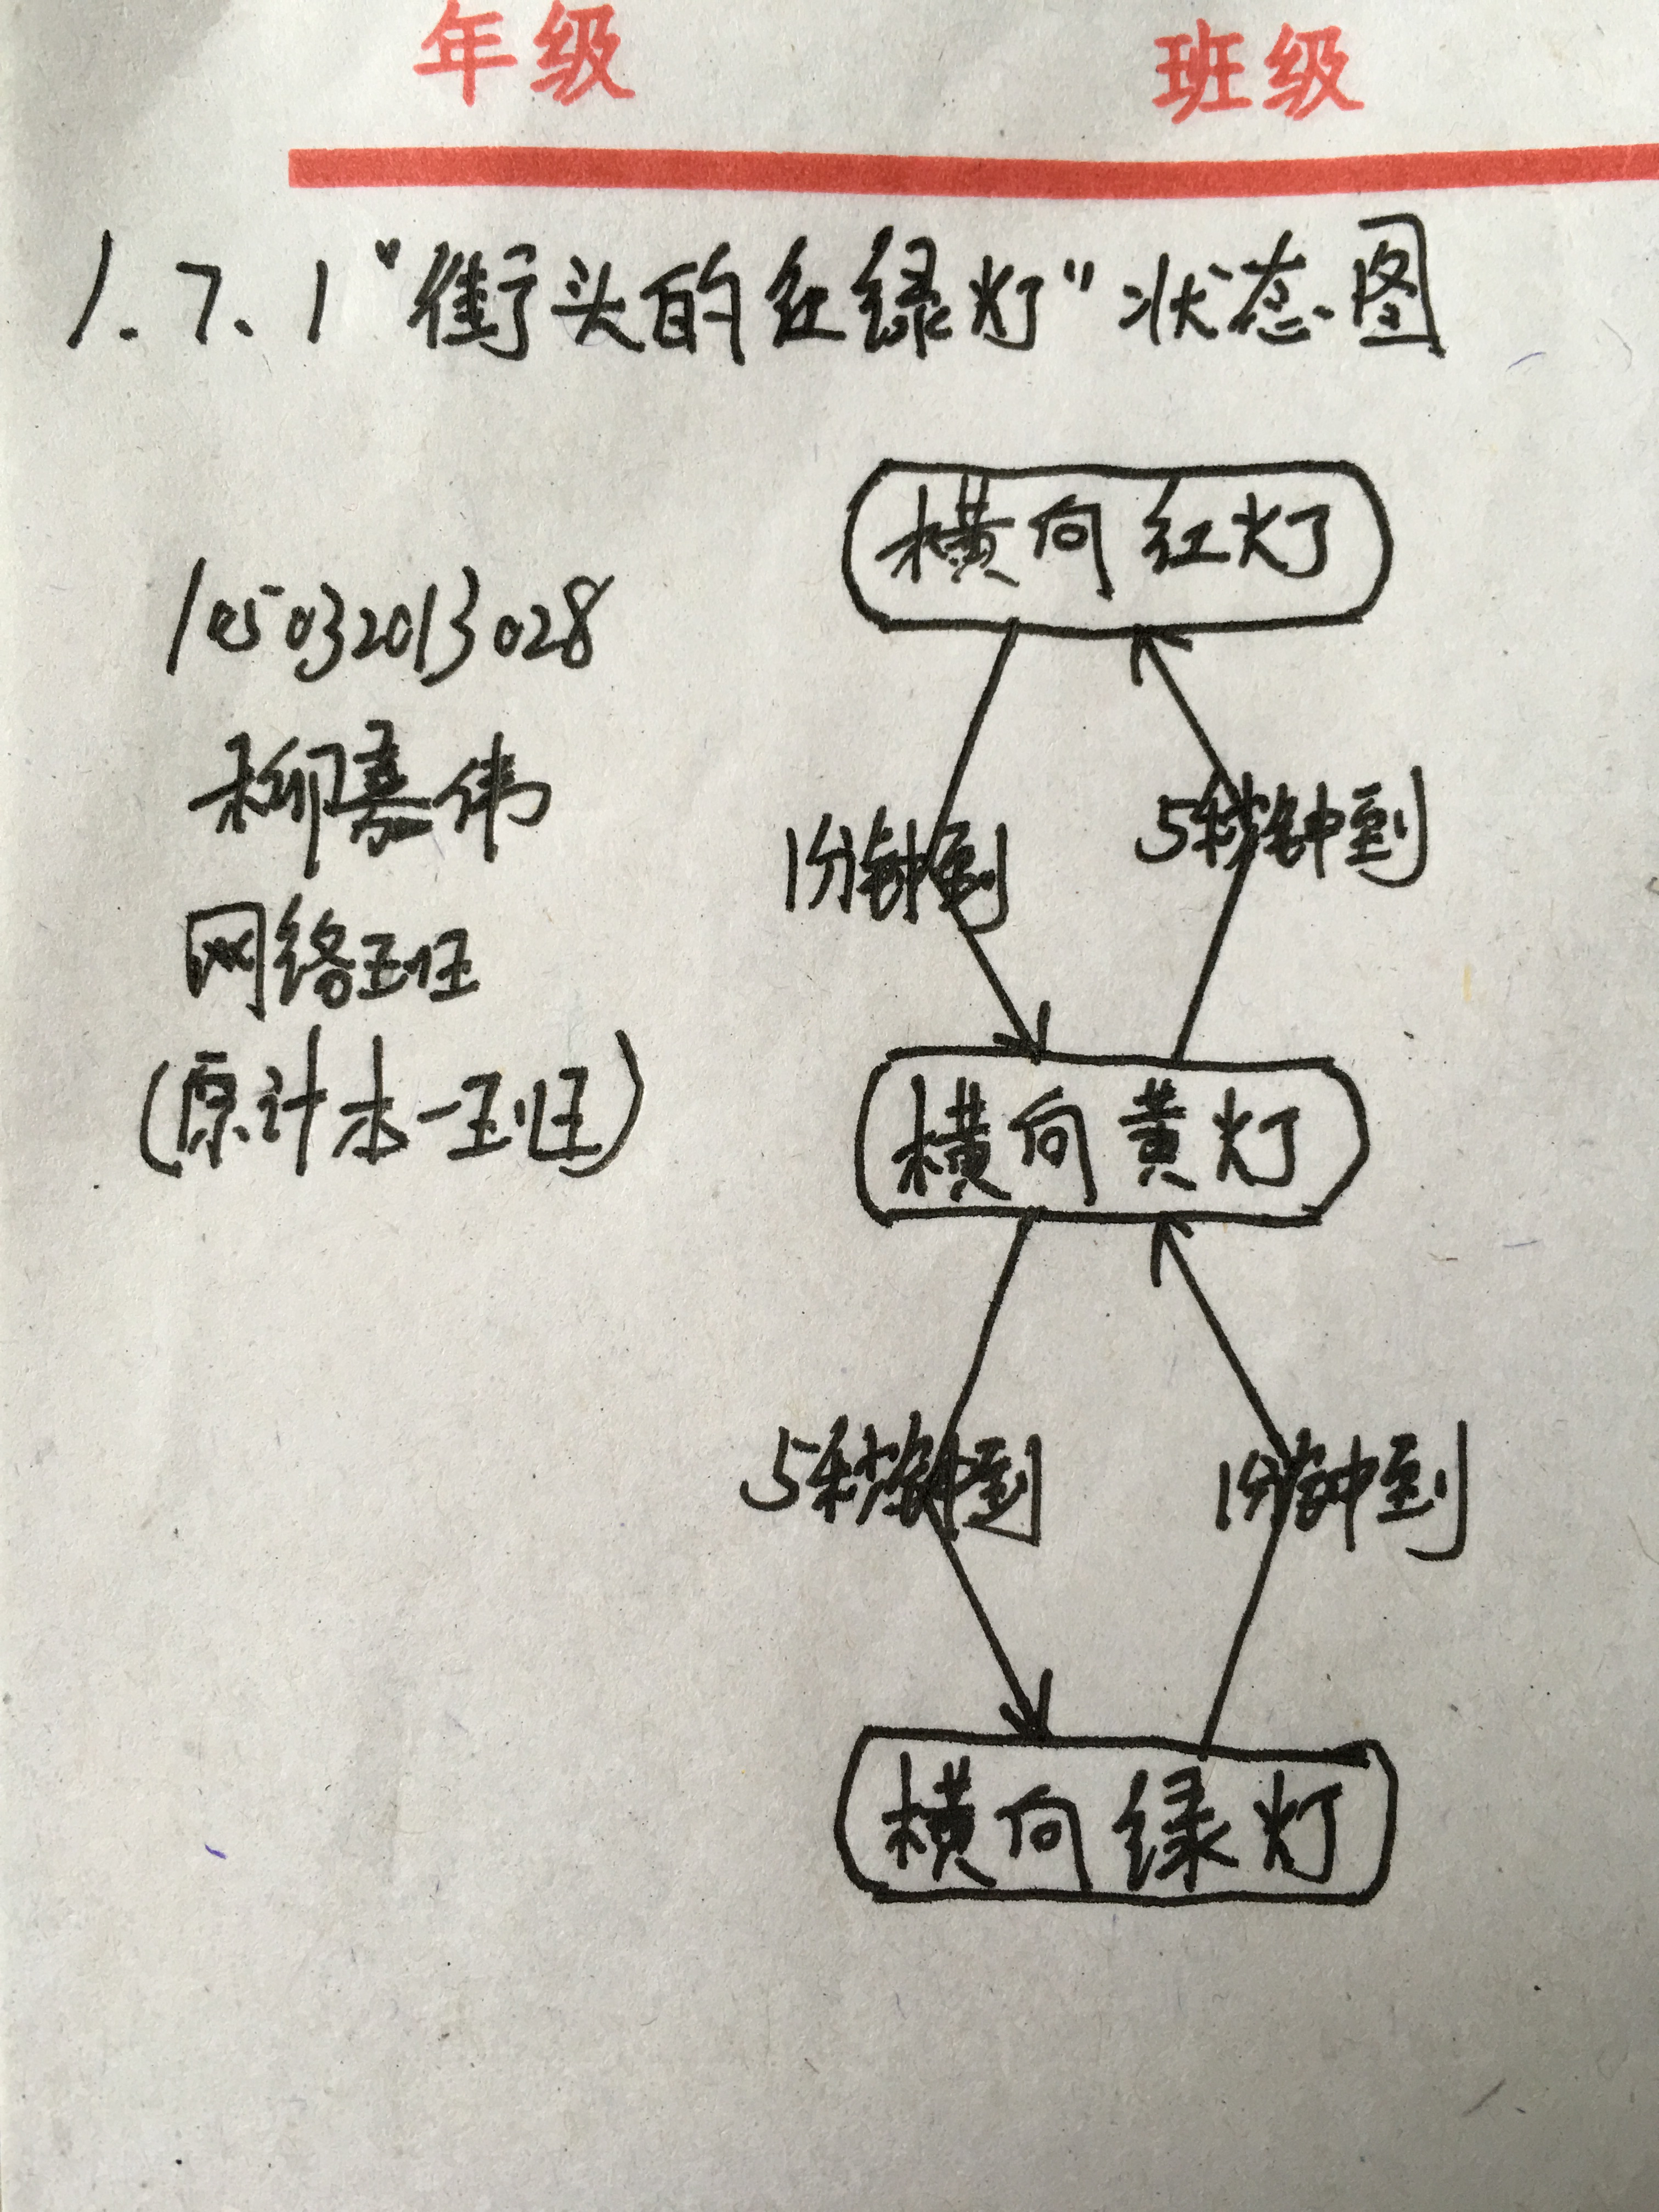 年级 班级
1.7.1 "街头的红绿灯"状态图
105032013028
柳嘉伟
网络班
(原计本一班)
横向红灯
1分钟到
5秒钟到
横向黄灯
5秒钟到
1分钟到
横向绿灯